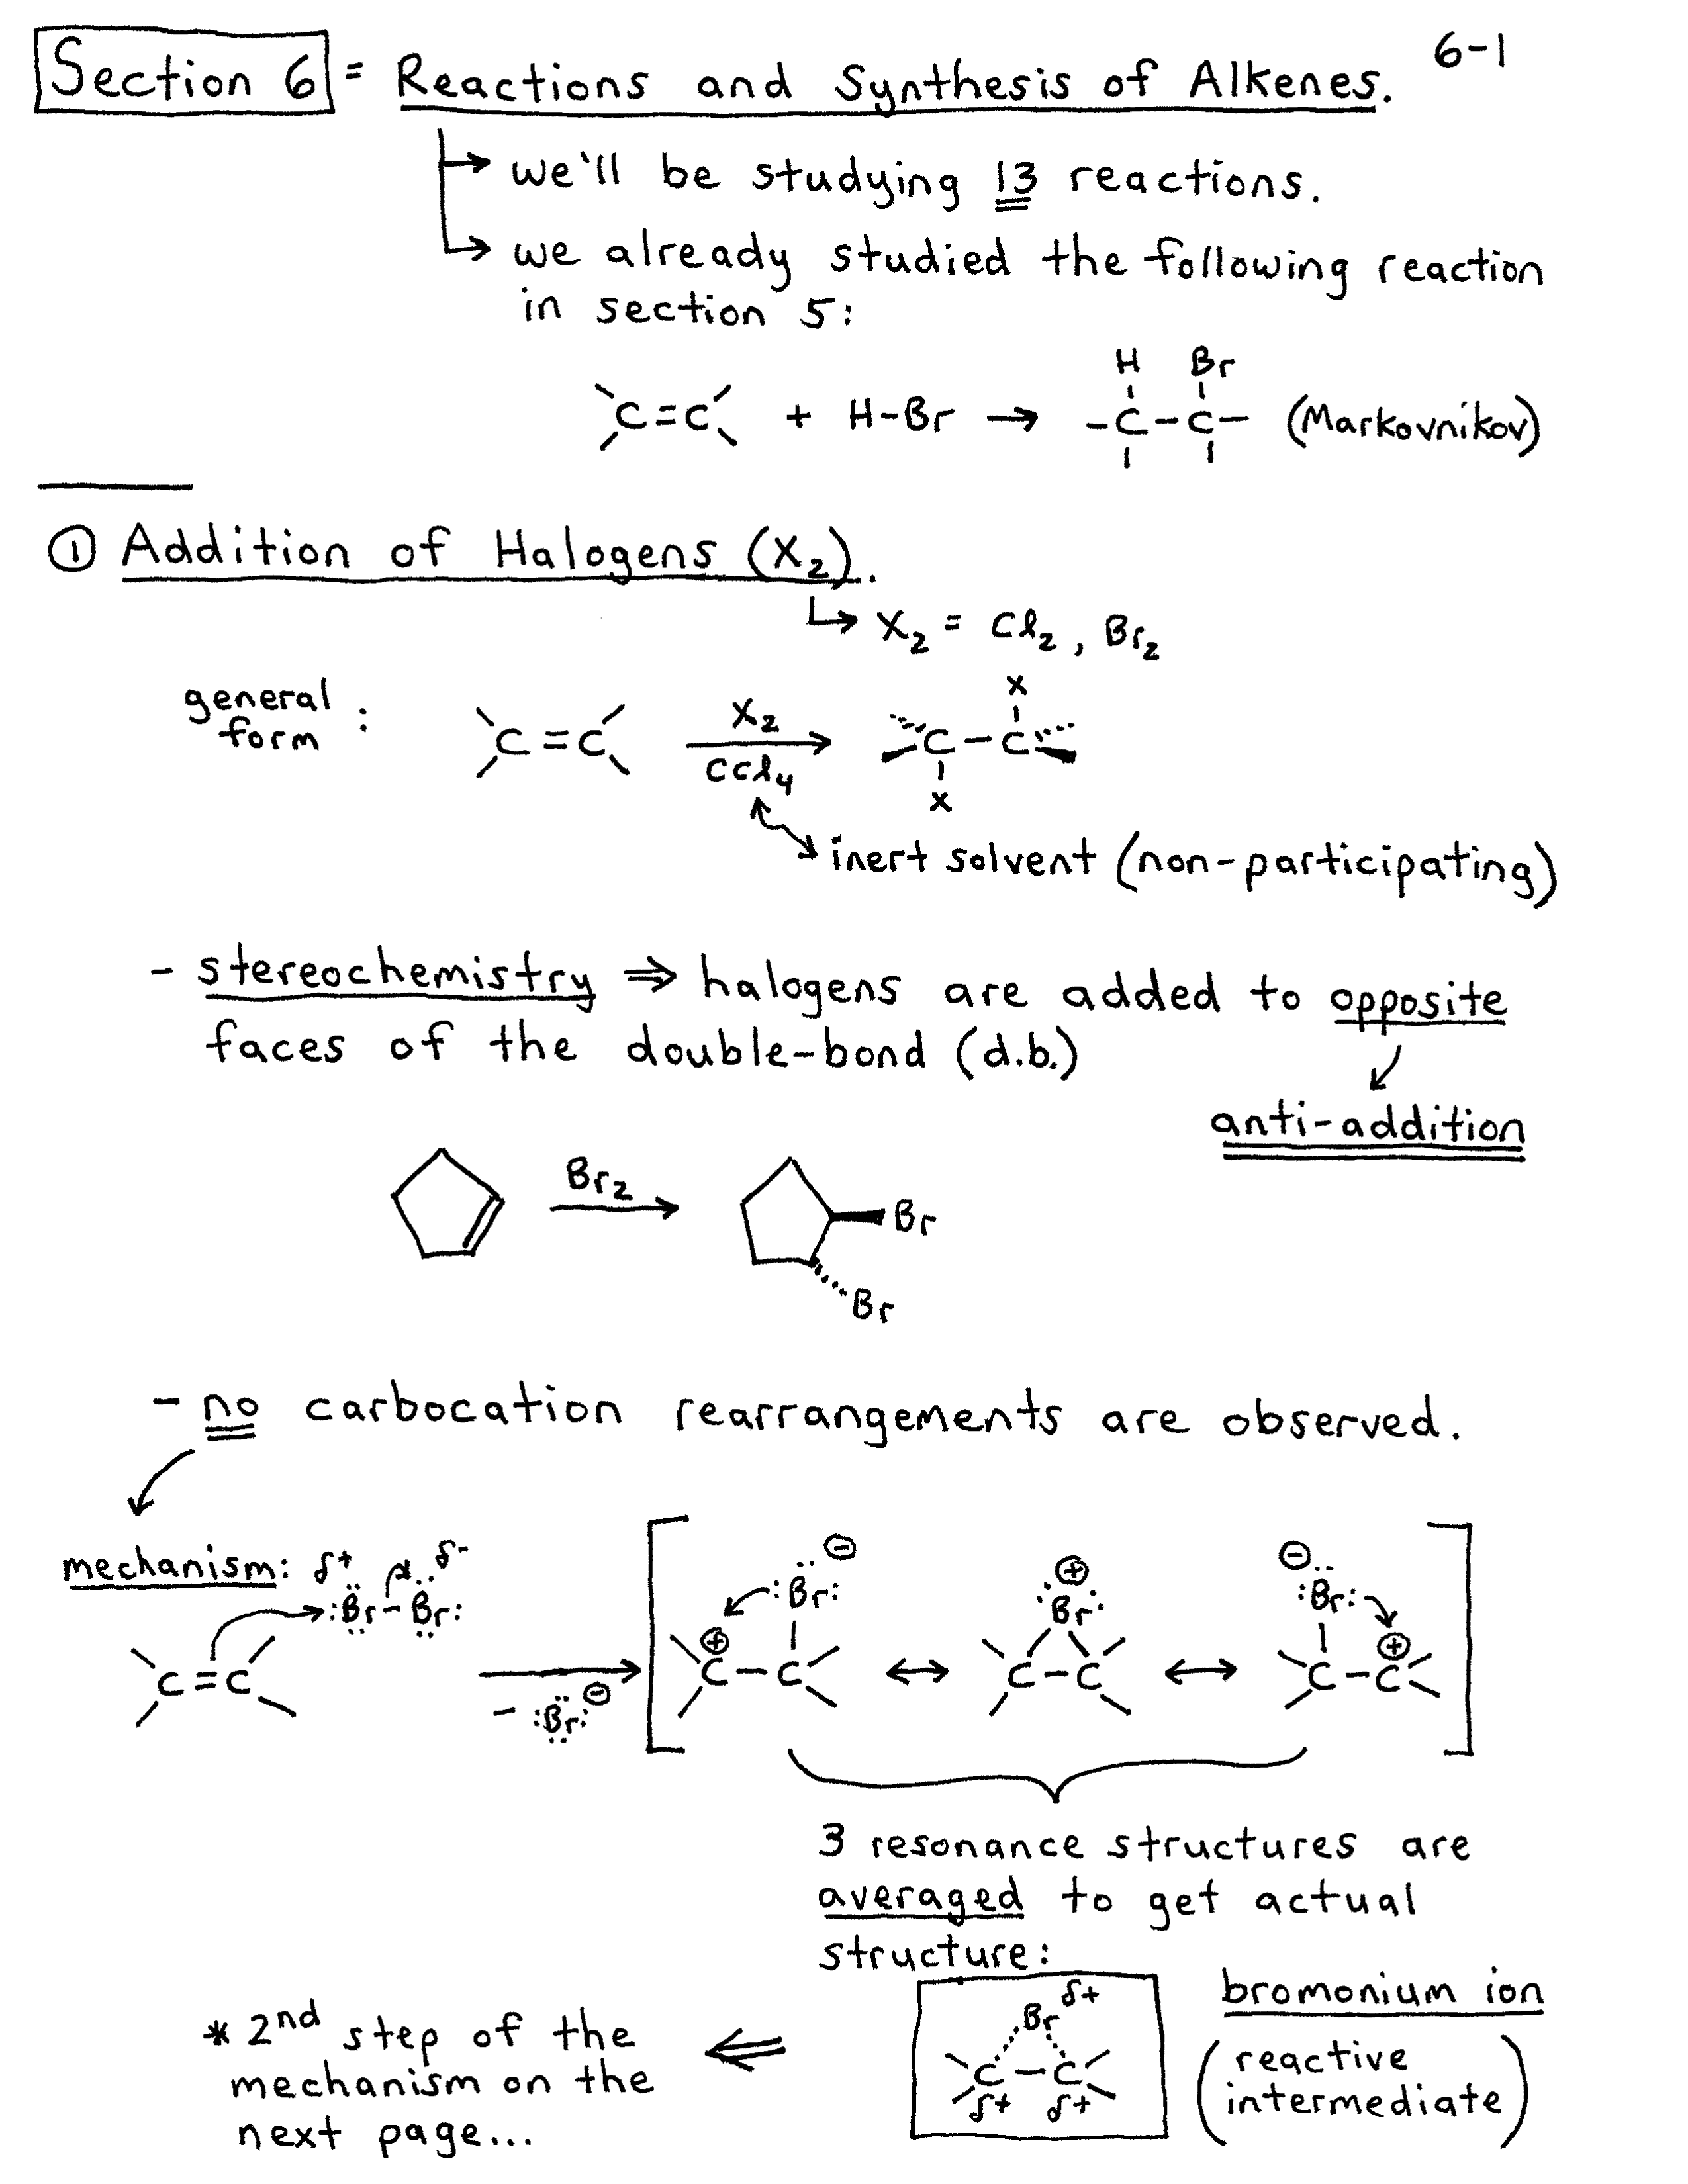 Section 6 = Reactions and Synthesis of Alkenes. 6-1
→ we'll be studying 13 reactions.
→ we already studied the following reaction
in section 5:
H Br
C=C + H-Br → -C-C- (Markovnikov)
① Addition of Halogens (X₂).
↳ X₂ = Cl₂, Br₂
general
form :
C=C X₂ → C-C X
CCl₄ X
inert solvent (non-participating)
- stereochemistry ⇒ halogens are added to opposite
faces of the double-bond (d.b.)
anti-addition
Br₂ → Br
Br
- no carbocation rearrangements are observed.
mechanism: δ+ δ-
:Br-Br:
C=C
- :Br: ⊖ →
[ ⊕ C-C :Br: ⊖ ↔ C-C Br ⊕ ↔ ⊖ :Br: C-C ⊕ ]
3 resonance structures are
averaged to get actual
structure:
Br δ+
C-C
δ+ δ+
bromonium ion
(reactive
intermediate)
* 2nd step of the ⇐
mechanism on the
next page...